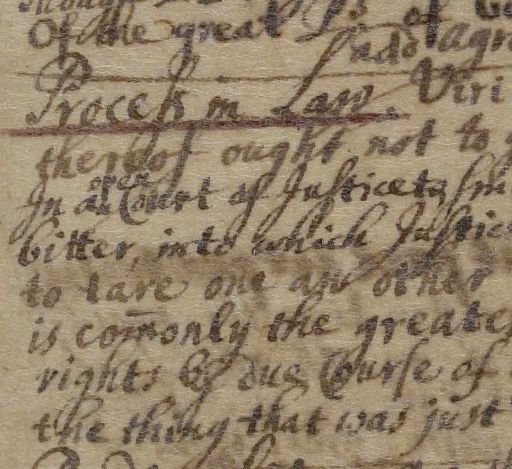 Of the great
Process in Law. Viri
thereof ought not to
In an open Court of Justice to
bitter, into which Justice
to tare one an other
is com̄only the greates
rights by due Course of
the thing that was just